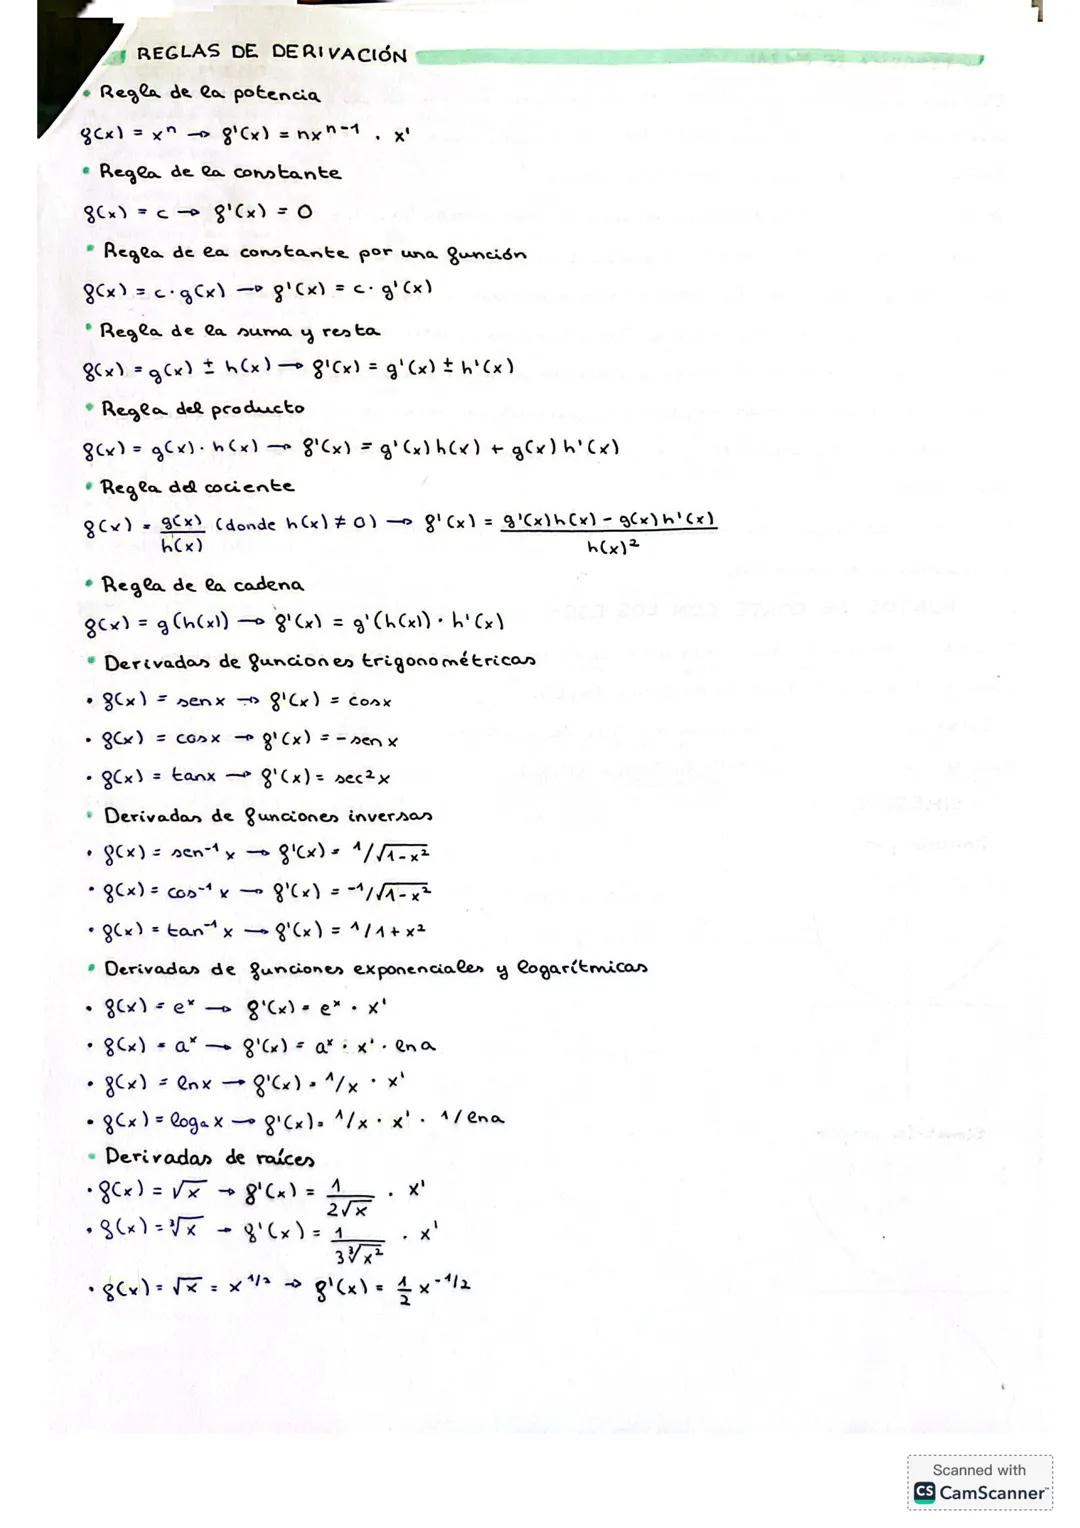 REGLAS DE DERIVACIÓN
• Regla de la potencia
f(x) = xⁿ → f'(x) = nxⁿ⁻¹ . x'
• Regla de la constante
f(x) = c → f'(x) = 0
• Regla de la constante por una función
f(x) = c · g(x) → f'(x) = c · g'(x)
• Regla de la suma y resta
f(x) = g(x) ± h(x) → f'(x) = g'(x) ± h'(x)
• Regla del producto
f(x) = g(x) · h(x) → f'(x) = g'(x)h(x) + g(x)h'(x)
• Regla del cociente
f(x) = g(x)/h(x) (donde h(x) ≠ 0) → f'(x) = g'(x)h(x) - g(x)h'(x)/h(x)²
• Regla de la cadena
f(x) = g(h(x)) → f'(x) = g'(h(x)) · h'(x)
• Derivadas de funciones trigonométricas
• f(x) = senx → f'(x) = cosx
• f(x) = cosx → f'(x) = -senx
• f(x) = tanx → f'(x) = sec²x
• Derivadas de funciones inversas
• f(x) = sen⁻¹x → f'(x) = 1/√1-x²
• f(x) = cos⁻¹x → f'(x) = -1/√1-x²
• f(x) = tan⁻¹x → f'(x) = 1/1+x²
• Derivadas de funciones exponenciales y logarítmicas
• f(x) = eˣ → f'(x) = eˣ · x'
• f(x) = aˣ → f'(x) = aˣ · x' · lna
• f(x) = lnx → f'(x) = 1/x · x'
• f(x) = logₐx → f'(x) = 1/x · x' · 1/lna
• Derivadas de raíces
• f(x) = √x → f'(x) = 1/2√x . x'
• f(x) = ³√x → f'(x) = 1/3³√x² . x'
• f(x) = √x = x^1/2 → f'(x) = 1/2 x^-1/2
Scanned with
CS CamScanner